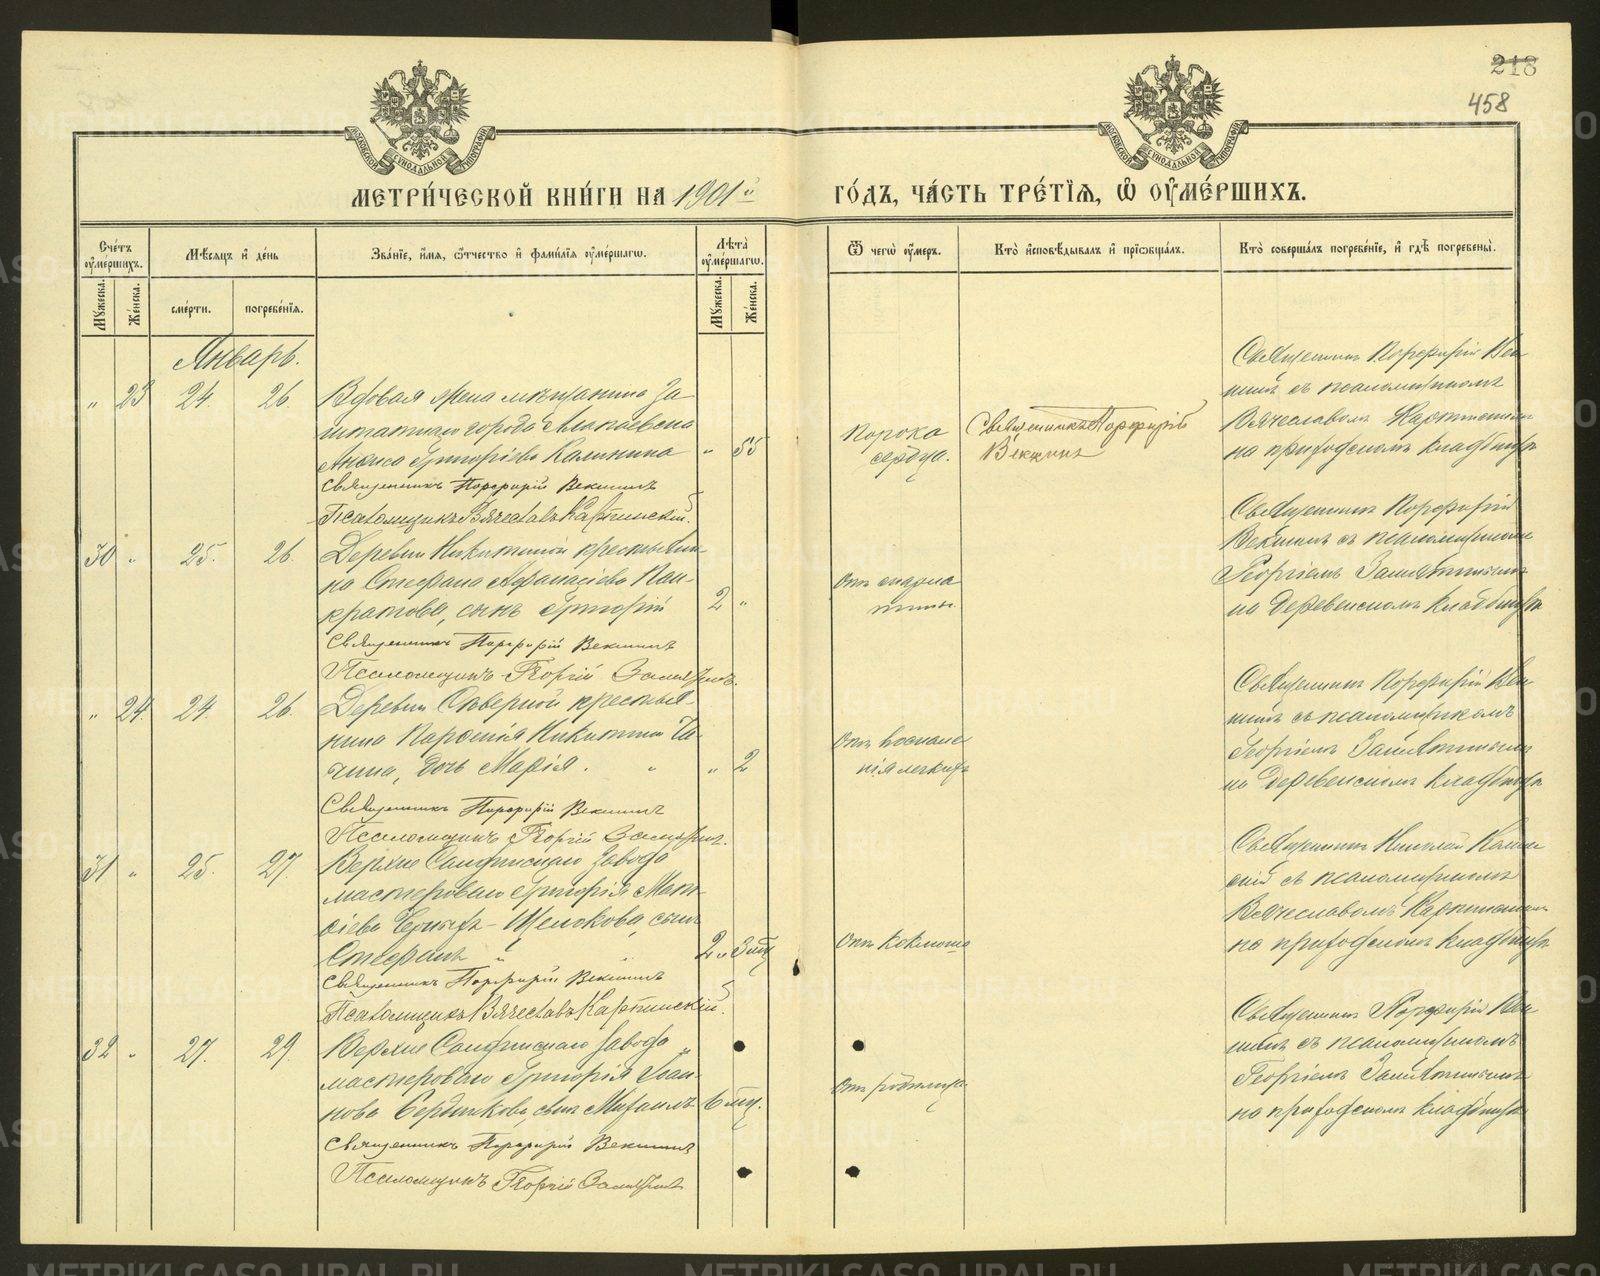 218
458
МОСКОВСКОЙ СѴНОДАЛЬНОЙ ТИПОГРАФІИ
МОСКОВСКОЙ СѴНОДАЛЬНОЙ ТИПОГРАФІИ
МЕТРИ́ЧЕСКОЙ КНИ́ГИ НА 1901й ГО́ДЪ, ЧА́СТЬ ТРЕ́ТІЯ, Ѿ ОУМЕ́РШИХЪ.
Сче́тъ оуме́ршихъ.
Мѣ́сяцъ и де́нь
Зва́ніе, и́мя, о́тчество и фами́лія оуме́ршагѡ.
Лѣта̀ оуме́ршагѡ.
Ѿ чегѡ̀ оу́меръ.
Кто̀ исповѣ́дывалъ и пріѡбща́лъ.
Кто̀ соверша́лъ погребе́ніе, и гдѣ̀ погребены̀.
Мꙋ́жеска.
Же́нска.
сме́рти.
погребе́нія.
Мꙋ́жеска.
Же́нска.
Январь.
" 23 24. 26. Вдовая жена мѣщанина За
штатнаго города Алапаевска
Аниса Григоріева Калинина " 55
Священникъ Порфирій Векшинъ
Псаломщикъ Вячеславъ Карпинскій.
Порока
сердца.
Священникъ Порфирій
Векшинъ
Священникъ Порфирій Век
шинъ съ псаломщикомъ
Вячеславомъ Карпинскимъ
на приходскомъ кладбищѣ
30 " 25. 26. Деревни Никитиной крестьяни
на Стефана Афанасіева Пан-
кратова, сынъ Григорій 2 "
Священникъ Порфирій Векшинъ
Псаломщикъ Георгій Замятинъ.
Отъ скарла
тины.
Священникъ Порфирій
Векшинъ съ псаломщикомъ
Георгіемъ Замятинымъ
на деревенскомъ кладбищѣ
" 24. 24. 26. Деревни Сѣверной крестья-
нина Никитина
дочь Марія. " " 2
Священникъ Порфирій Векшинъ
Псаломщикъ Георгій Замятинъ.
Отъ воспале
нія легкихъ
Священникъ Порфирій Век
шинъ съ псаломщикомъ
Георгіемъ Замятинымъ
на деревенскомъ кладбищѣ
31 " 25. 27. Верхне Салдинскаго завода
мастероваго Григорія
Щелокова, сынъ
Стефанъ " " 2 " 3 мц
Священникъ Порфирій Векшинъ
Псаломщикъ Вячеславъ Карпинскій.
Отъ коклюша
Священникъ Николай
съ псаломщикомъ
Вячеславомъ Карпинскимъ
на приходскомъ кладбищѣ
32 " 27. 29. Верхне Салдинскаго завода
мастероваго Григорія Іоан-
нова Сердиткова, сынъ Михаилъ 6 мц.
Священникъ Порфирій Векшинъ
Псаломщикъ Георгій Замятинъ
Отъ родимца
Священникъ Порфирій Век
шинъ съ псаломщикомъ
Георгіемъ Замятинымъ
на приходскомъ кладбищѣ
METRIKI.GASO-URAL.RU